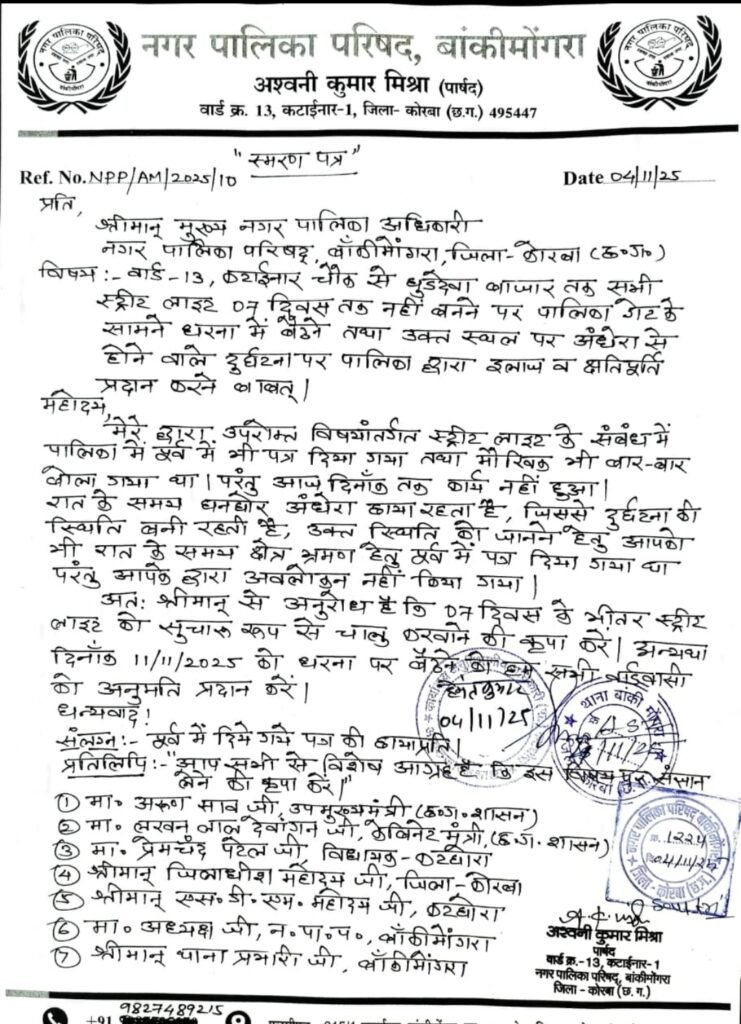 नगर पालिका परिषद, बांकीमोंगरा
अश्वनी कुमार मिश्रा (पार्षद)
वार्ड क्र. 13, कटाईनार-1, जिला- कोरबा (छ.ग.) 495447
"स्मरण पत्र"
Ref. No. NPP/AM/2025/10
Date 04/11/25
प्रति,
श्रीमान् मुख्य नगर पालिका अधिकारी
नगर पालिका परिषद, बाँकीमोंगरा, जिला-कोरबा (छ०ग०)
विषय:- वार्ड-13, कटाईनार चौक से घुड़देवा बाजार तक सभी
स्ट्रीट लाइट 07 दिवस तक नहीं बनने पर पालिका गेट के
सामने धरना में बैठने तथा उक्त स्थल पर अंधेरा से
होने वाले दुर्घटना पर पालिका द्वारा इलाज व क्षतिपूर्ति
प्रदान करने बाबत्।
महोदय,
मेरे द्वारा उपरोक्त विषयांतर्गत स्ट्रीट लाइट के संबंध में
पालिका में पूर्व में भी पत्र दिया गया तथा मौखिक भी बार-बार
बोला गया था। परंतु आज दिनाँक तक कार्य नहीं हुआ।
रात के समय घनघोर अंधेरा छाया रहता है, जिससे दुर्घटना की
स्थिति बनी रहती है, उक्त स्थिति को जानने हेतु आपको
भी रात के समय क्षेत्र भ्रमण हेतु पूर्व में पत्र दिया गया था
परंतु आपके द्वारा अवलोकन नहीं किया गया।
अतः श्रीमान् से अनुरोध है कि 07 दिवस के भीतर स्ट्रीट
लाइट को सुचारू रूप से चालु करवाने की कृपा करें। अन्यथा
दिनाँक 11/11/2025 को धरना पर बैठने की हम सभी वार्डवासी
को अनुमति प्रदान करें।
धन्यवाद!
04/11/25
थाना बांकी मोंगरा
संलग्न:- पूर्व में दिये गये पत्र की छायाप्रति।
प्रतिलिपि:- "आप सभी से विशेष आग्रह है कि इस विषय पर संज्ञान
लेने की कृपा करें।"
① मा० अरुण साव जी, उपमुख्यमंत्री (छ०ग० शासन)
② मा० लखन लाल देवांगन जी, केबिनेट मंत्री, (छ.ग. शासन)
③ मा० प्रेमचंद पटेल जी, विधायक-कटघोरा
④ श्रीमान् जिलाधीश महोदय जी, जिला-कोरबा
⑤ श्रीमान् एस.डी.एम. महोदय जी, कटघोरा
⑥ मा० अध्यक्ष जी, न.पा.प., बाँकीमोंगरा
⑦ श्रीमान् थाना प्रभारी जी, बाँकीमोंगरा
नगर पालिका परिषद बांकीमोंगरा
क्र. 1224
04/11/25
जिला - कोरबा (छ.ग.)
अश्वनी कुमार मिश्रा
पार्षद
वार्ड क्र.-13, कटाईनार-1
नगर पालिका परिषद, बांकीमोंगरा
जिला - कोरबा (छ. ग.)
9827489215
+91